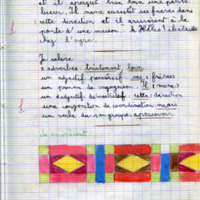 et il aperçut bien loin une petite
lueur. Il mena aussitôt ses frères dans
cette direction et ils arrivèrent à la
porte d'une maison. le
chez l'ogre.
Je relève
2 adverbes : tristement, loin
un adjectif possessif : ses (frères)
un pronom de conjugaison : il (mena)
un adjectif démonstratif : cette (direction
une conjonction de coordination mais
un verbe du 3e groupe : apercevoir.